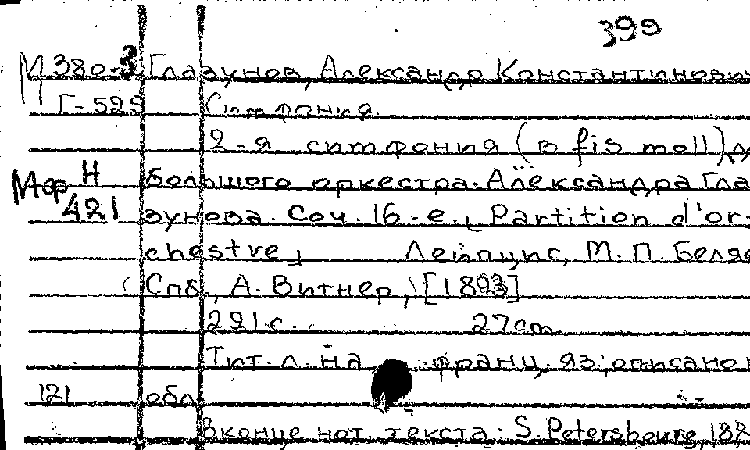 399
М 380-3 Глазунов, Александр Константинович
Г-529 Симфония.
2-я симфония (в fis moll) д
Мфр Н большого оркестра. Александра Гла
421 зунова. Соч. 16-е. Partition d'or
chestre, Лейпциг, М. П. Беляе
(Спб., А. Витнер,) [1893]
221 с. 27 cm.
Тит. л. на франц. яз; описано
121 обл
В конце нот. текста: S. Petersbourg, 188